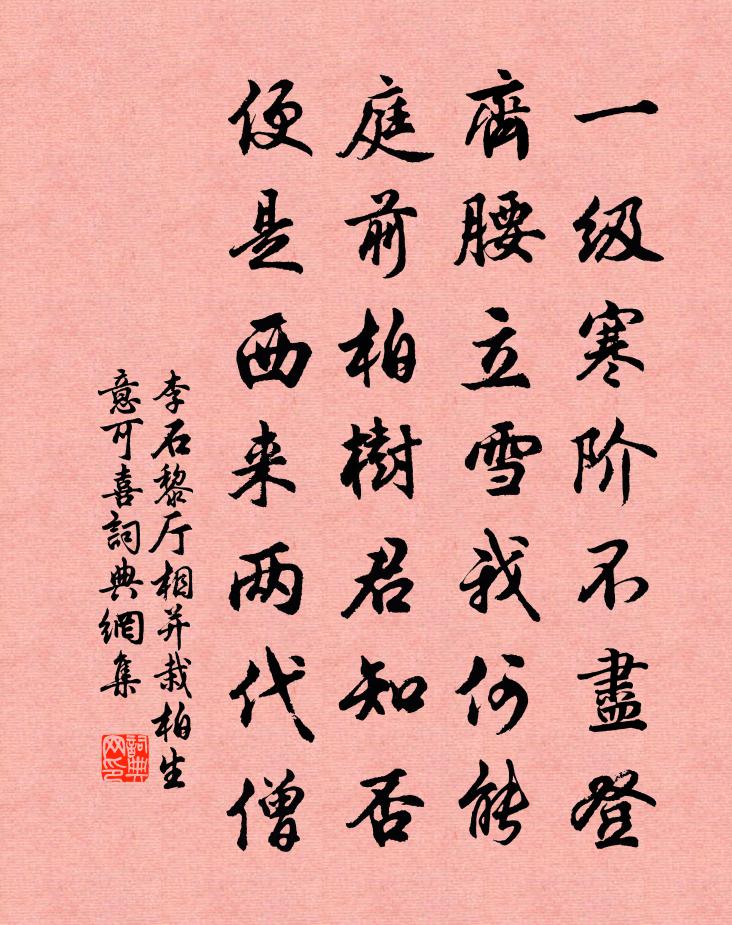 一级寒阶不盡登
齊腰立雪我何能
庭前柏樹君知否
便是西来两代僧
李石黎厅相并栽柏生
意可喜詞典網集
詞典
网印